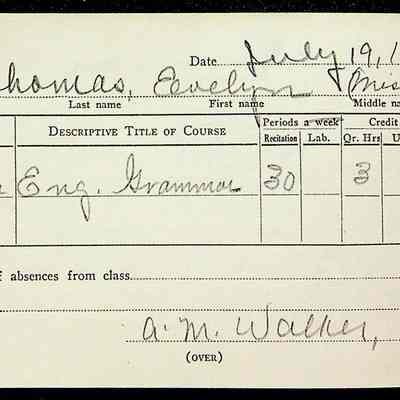 Date July 19, 1
Thomas, Evelyn (Miss
Last name First name Middle na
DESCRIPTIVE TITLE OF COURSE Periods a week Credit
Recitation Lab. Qr. Hrs. U
Eng. Grammar 30 3
f absences from class
A. M. Walker,
(OVER)